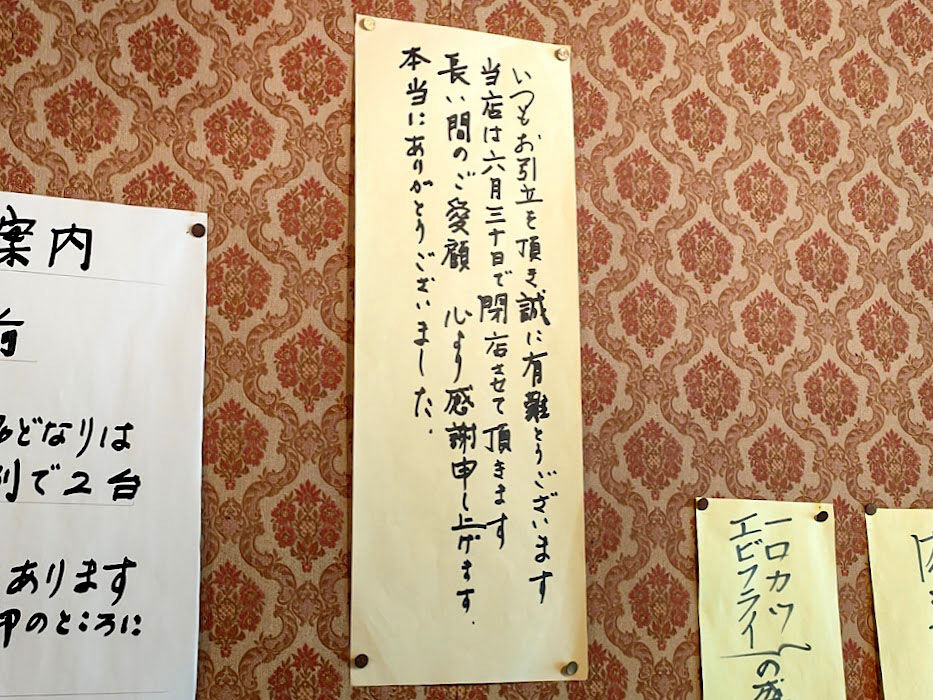 いつもお引立を頂き誠に有難とうございます
当店は六月三十日で閉店させて頂きます
長い間のご愛顧 心より感謝申し上げます.
本当にありがとうございました.
案内
どなりは
別で2台
あります
印のところに
一口カツ
エビフライ
の盛